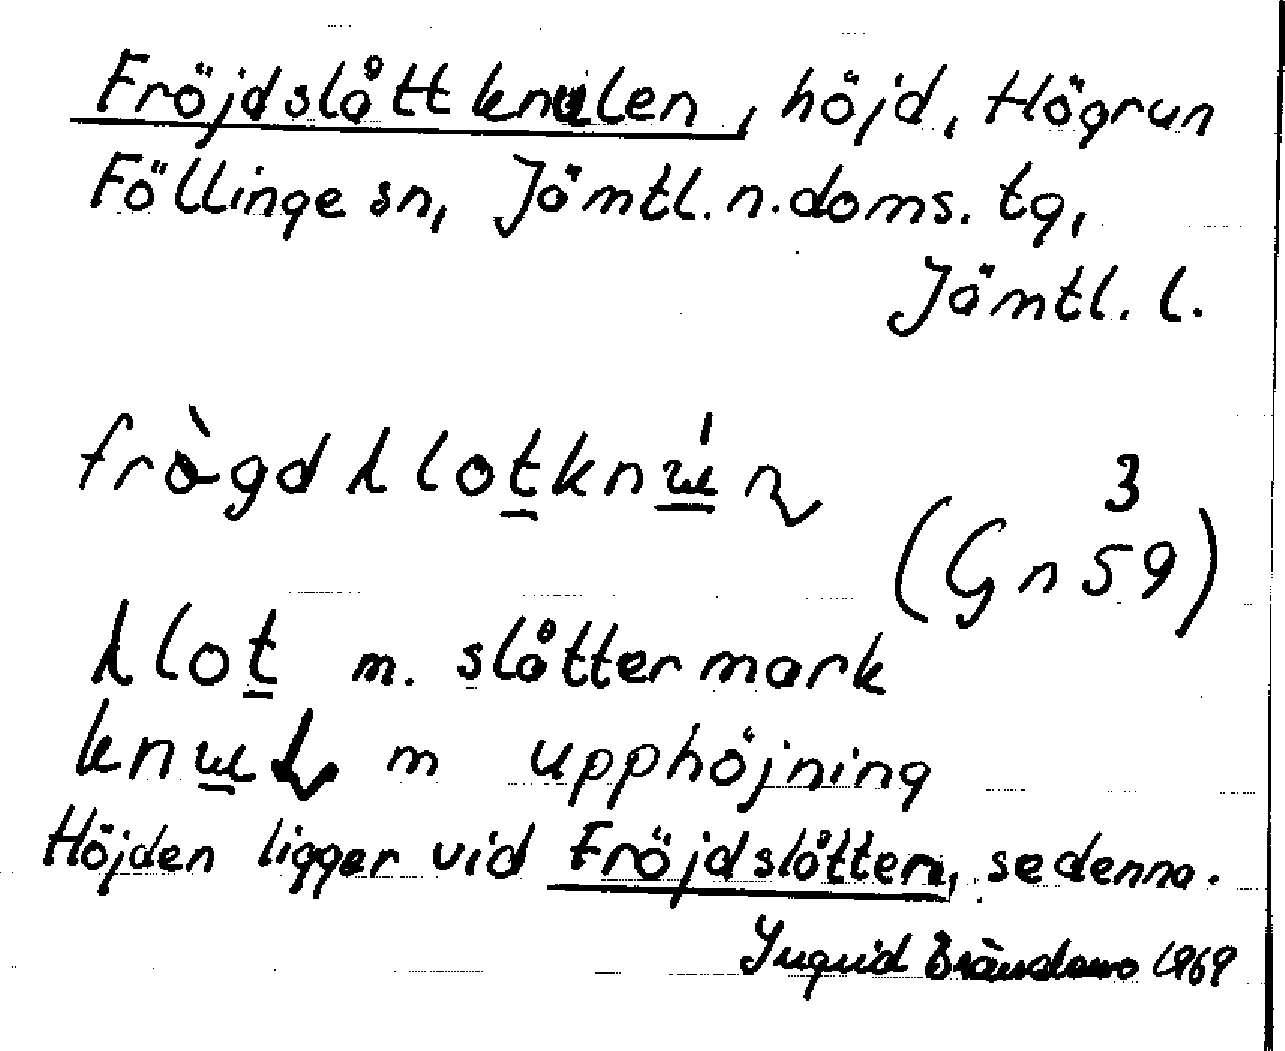 Fröjdslåttknulen, höjd, Högrun
Föllinge sn, Jämtl. n. doms. tg,
Jämtl. l.
3
(Gn 59)
m. slåttermark
m upphöjning
Höjden ligger vid Fröjdslåtten, se denna.
Ingrid Brändemo 1969